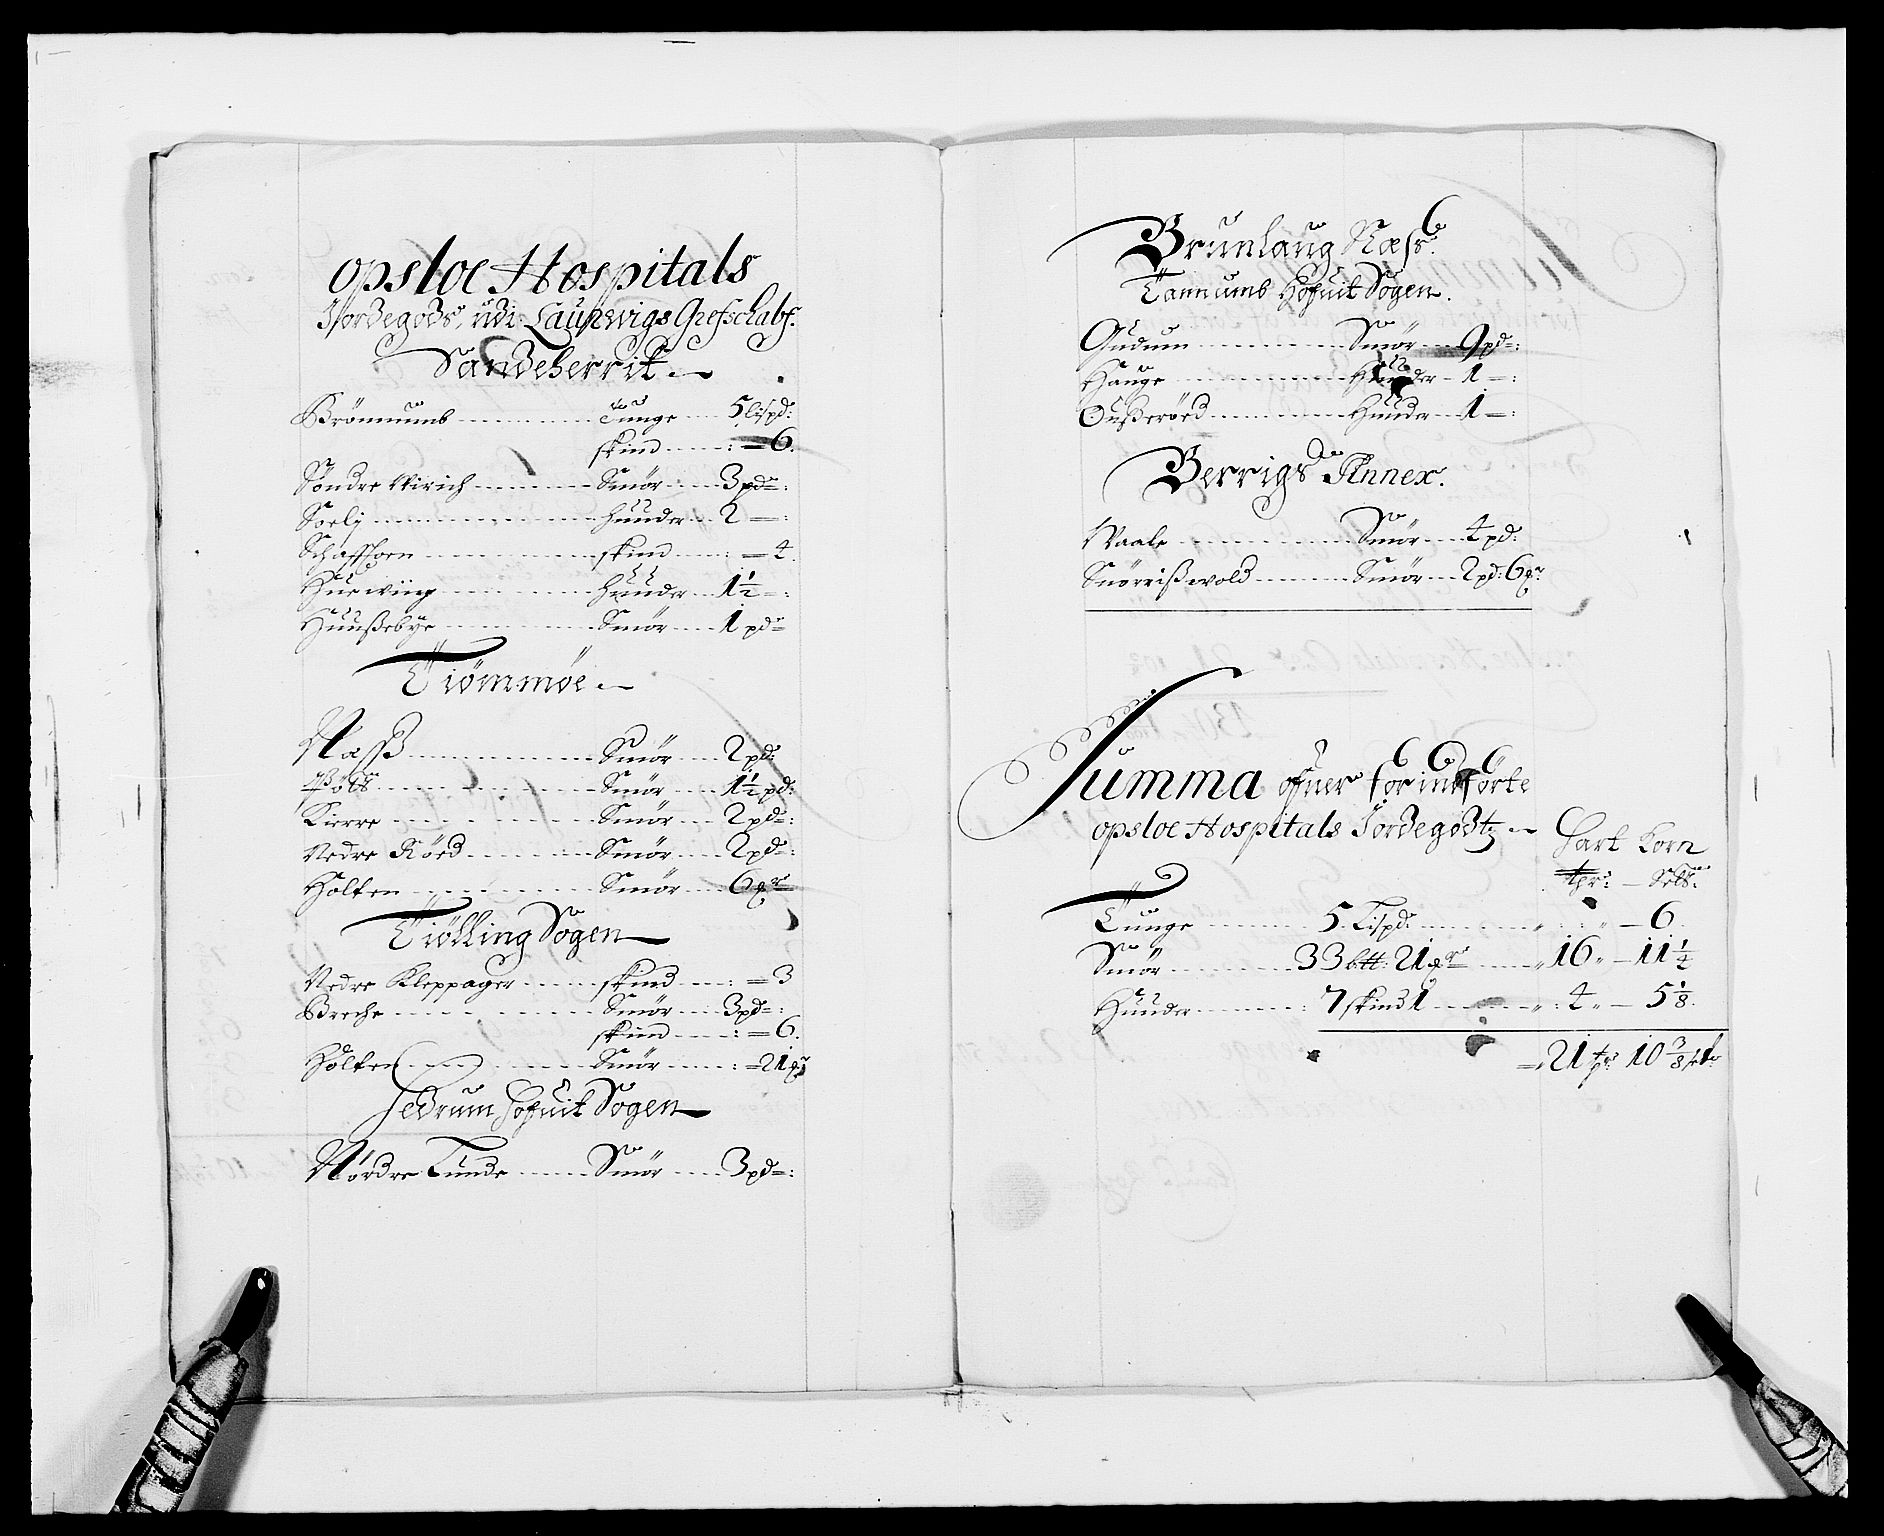 opsloe Hospitals
Jordegods, udi Laurwigs Grefschabf.
Sandeherrit
Brönnumb Tunge 5 lispd:
skind 6.
Söndre Wirich Smör 3 pd
Soelj huuder 2
Schaffhoen skind 4
Huewiig huuder 1½
Huußebye Smör 1 pd
Tiömmöe
Næß Smör 2 pd:
Böls Smör 1½ pd:
Kierre Smör 2 pd:
Nedre Röed Smör 2 pd
Holten Smör 6
Tiölling Sogen
Nedre Kleppager skind 3
Breche Smör 3 pd
skind 6.
Holten Smör 21
Hedrum Hofuit Sogen
Nordre Lunde Smör 3 pd:
Brunlaug Næss.
Tannumb Hofuit Sogen.
Gudum Smör 9 pd:
Hauge Huuder 1
Oußeröed Huuder 1
Berrigs Annex.
Waale Smör 4 pd:
Snörrißwold Smör 2 pd: 6
Summa ofuer for indförte
opsloe Hospitals Jordegodtz
Hart Korn
tpr: Seto:
Tunge 5 Lispd: 6
Smör 33 btt: 21 16 11¼
Huuder 7 skind 1 4 5⅛
21 10⅜